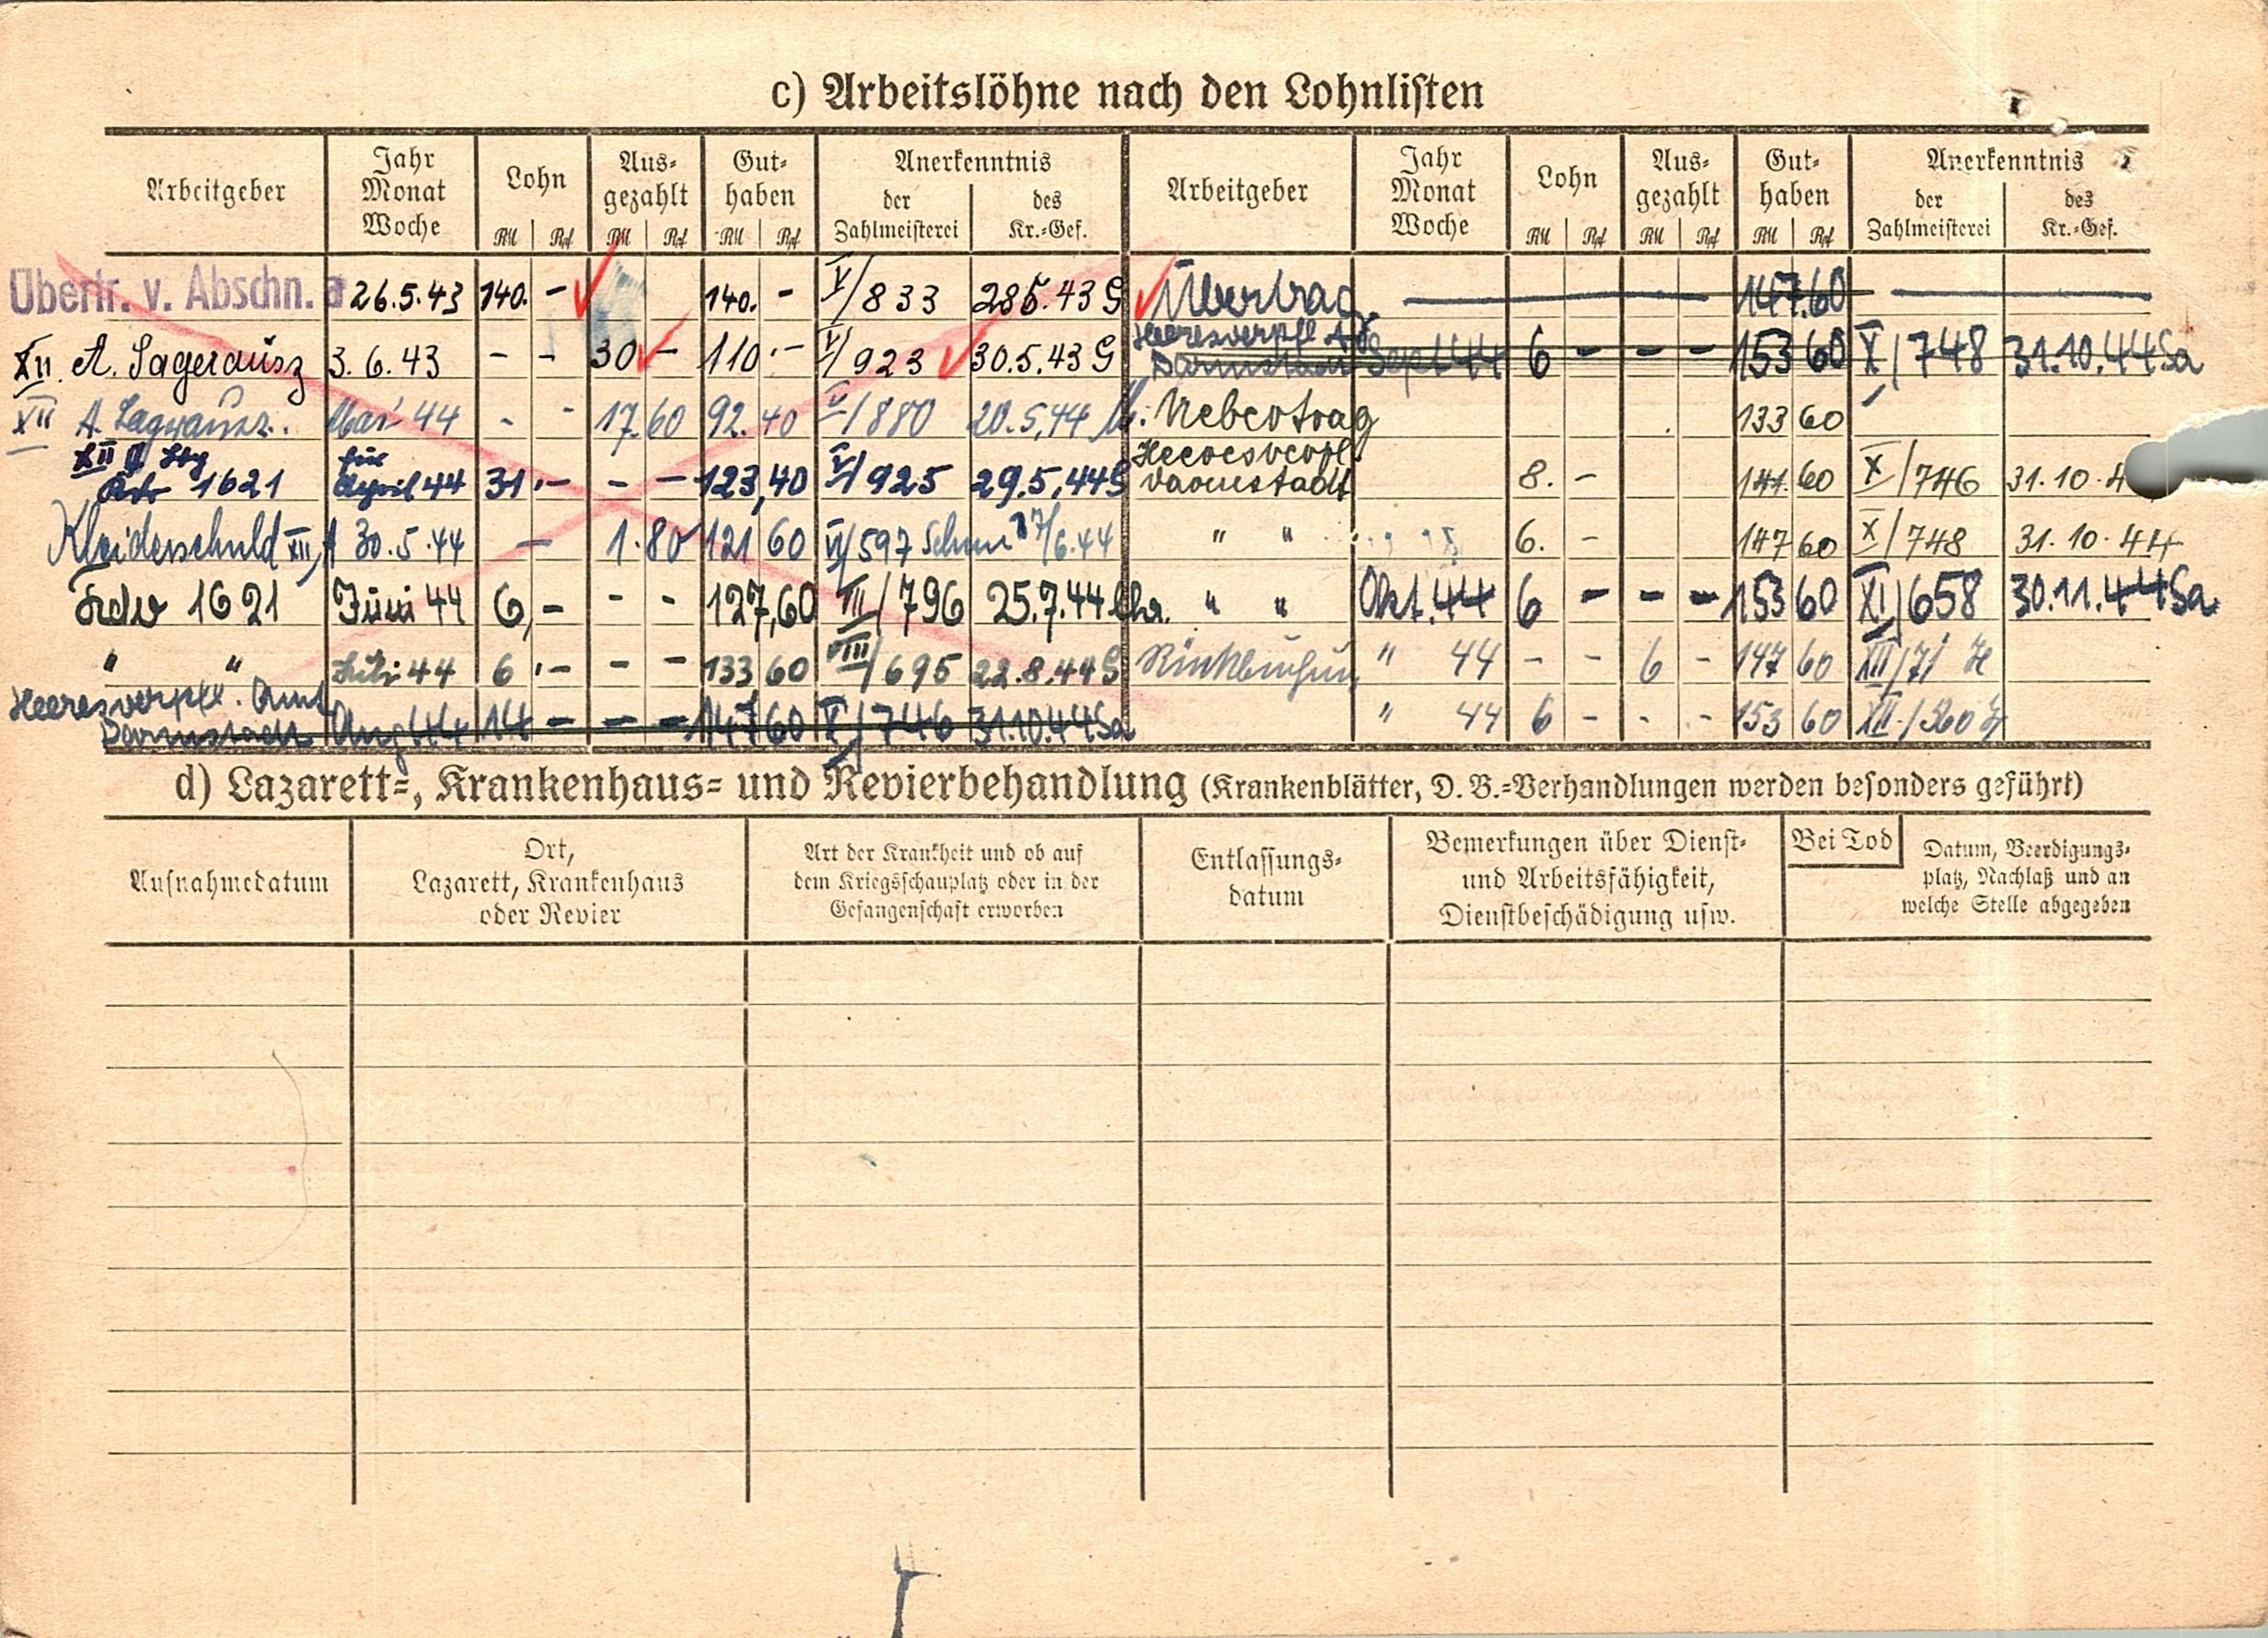 c) Arbeitslöhne nach den Lohnlisten
Arbeitgeber Jahr Monat Woche Lohn RM Rpf Ausgezahlt RM Rpf Guthaben RM Rpf Anerkenntnis der Zahlmeisterei des Kr.-Gef. Arbeitgeber Jahr Monat Woche Lohn RM Rpf Ausgezahlt RM Rpf Guthaben RM Rpf Anerkenntnis der Zahlmeisterei des Kr.-Gef.
Übertr. v. Abschn. a 26.5.43 140. - 140. - V/833 28.5.43 G
XII A. Lagerausz 3.6.43 - - 30 - 110.- V/923 30.5.43 G
XII A. Lagerausz. Mai 44 - - 17.60 92.40 V/880 20.5.44
XII 1621 für April 44 31.- - - 123,40 V/925 29.5.44 G
Kleiderschuld XII A 30.5.44 - 1.80 121 60 VI/597 17/6.44
1621 Juni 44 6,- - - 127,60 VII/796 25.7.44
" " Juli 44 6.- - - 133 60 VIII/695 22.8.44 G
Heeresverpfl. Amt
Darmstadt Aug 44 14 - - - 147 60 X/746 31.10.44 Sa
Übertrag 147.60
Heeresverpfl. A
Darmstadt Sept 44 6 - - - 153 60 X/748 31.10.44 Sa
Uebertrag 133 60
Heeresverpfl.
Darmstadt 8. - 141. 60 X/746 31.10.4
" " 6. - 147 60 X/748 31.10.44
" " Okt. 44 6 - - - 153 60 XI/658 30.11.44 Sa
" 44 - - 6 - 147 60 XII/71
" 44 6 - - - 153 60 XII/360
d) Lazarett-, Krankenhaus- und Revierbehandlung (Krankenblätter, D. B.-Verhandlungen werden besonders geführt)
Aufnahmedatum
Ort,
Lazarett, Krankenhaus
oder Revier
Art der Krankheit und ob auf
dem Kriegsschauplatz oder in der
Gefangenschaft erworben
Entlassungs-
datum
Bemerkungen über Dienst-
und Arbeitsfähigkeit,
Dienstbeschädigung usw.
Bei Tod
Datum, Beerdigungs-
platz, Nachlaß und an
welche Stelle abgegeben